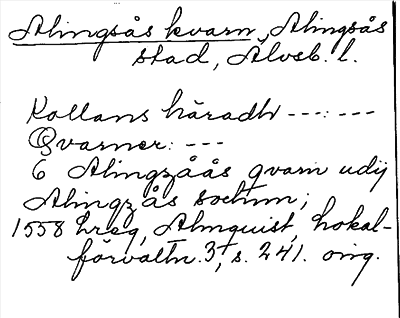 Alingsås kvarn, Alingsås
stad, Älvsb. l.
Kollans häradh ---:---
Qvarner: ---
6 Alingzåås qvarn udij
Alingz ås sochnn;
1558 hreg, Almquist, Lokal-
förvaltn. 3, s. 241. orig.